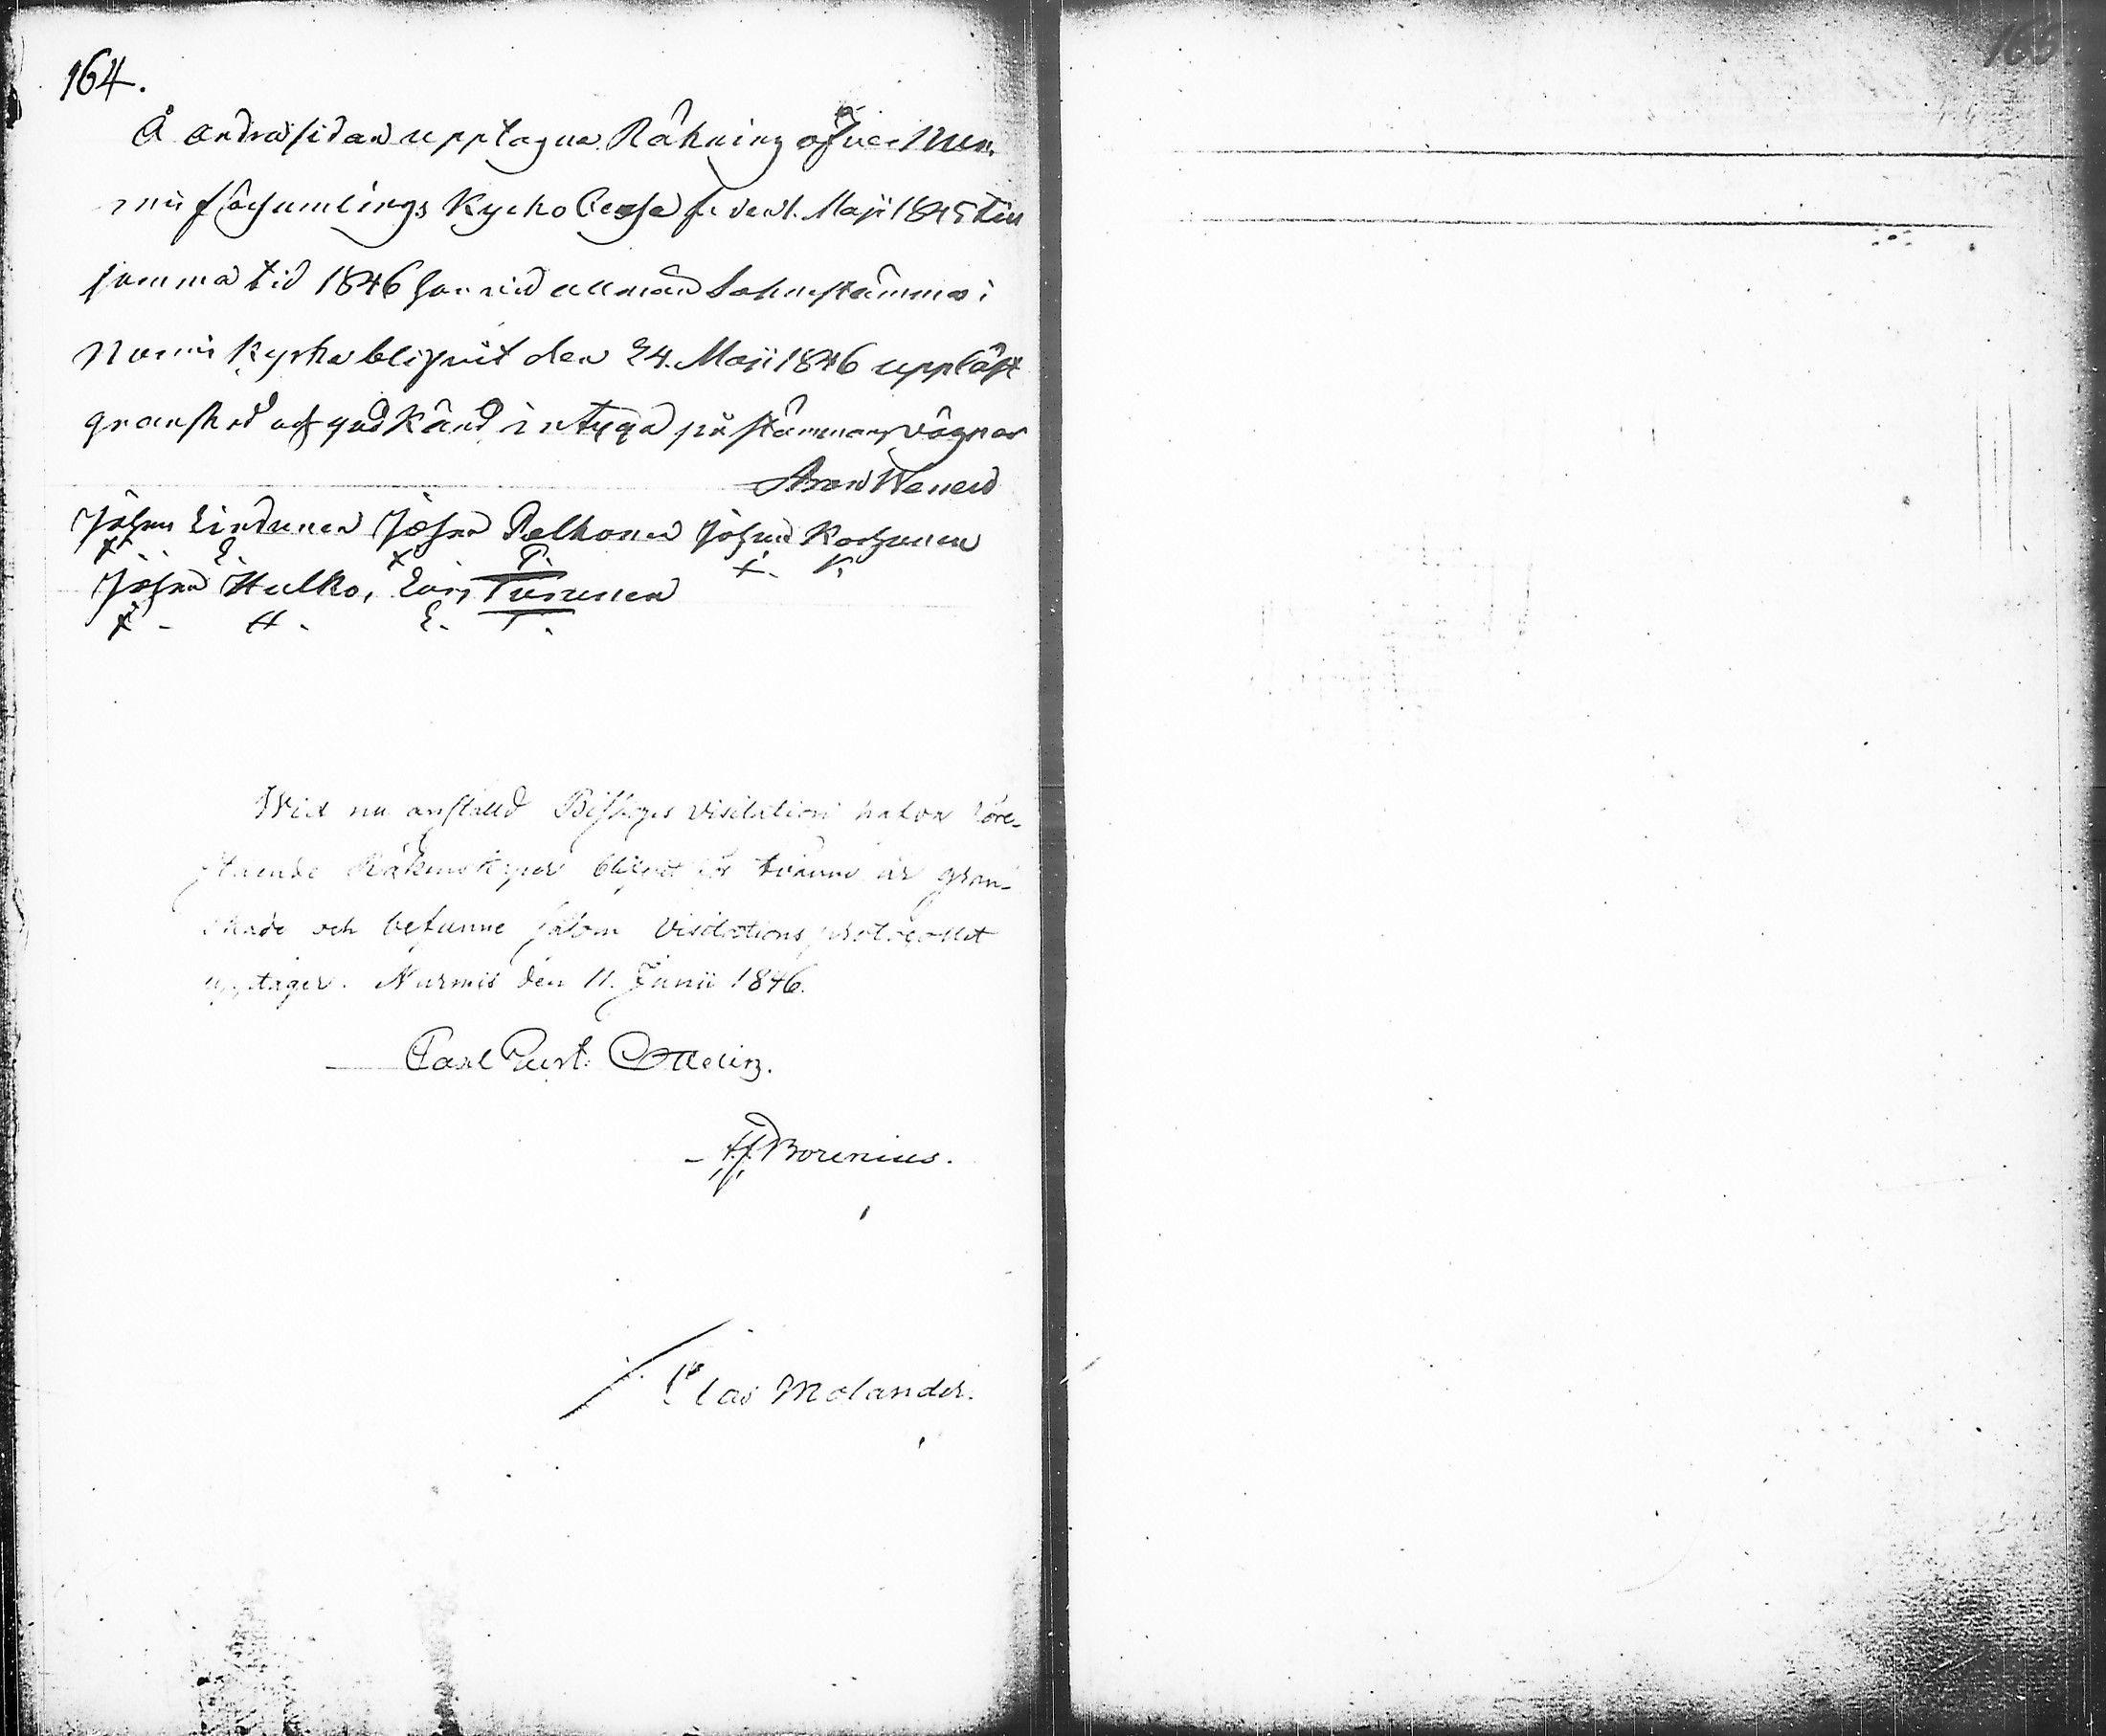 164.
165
Å andra sidan upptagna Räkning öfver Nur-
mis församlings Kyrko Cassa fr. den 1. Maji 1845 till
samma tid 1846 har vid allmän Soknestämma i
Nurmis Kyrka blifvit den 24. Maji 1846 uppläst
granskad och godkänd, intyga på stämmans vägnar
Johan Johan Pelkonen Johan Korhonen
Johan Hulko, Turunen
Wid nu anstäld Biskops visitation hafva före-
stående Räkenskaper blifvit för år gran-
skade och befunne såsom Visitations protocollet
upptager. Nurmis den 11. Junii 1846.
Carl Gust. Ottelin.
Borenius.
Clas Molander.